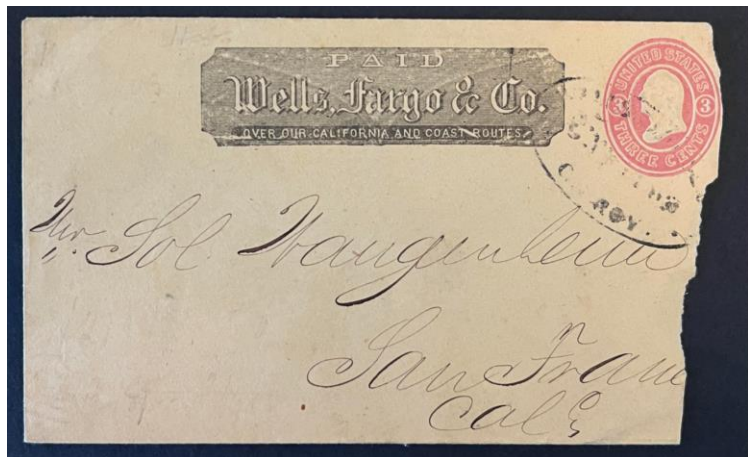 PAID
Wells, Fargo & Co.
OVER OUR CALIFORNIA AND COAST ROUTES
UNITED STATES
3 3
THREE CENTS
Mr. Sol. Wangenheim
San Fran
Cal